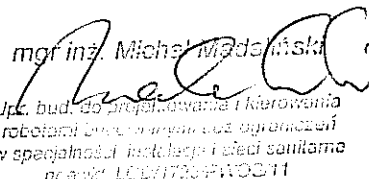 mgr inż. Michał Madaliński
Upr. bud. do projektowania i kierowania
robotami budowlanymi bez ograniczeń
w specjalności: instalacje i sieci sanitarne
nr ewid.